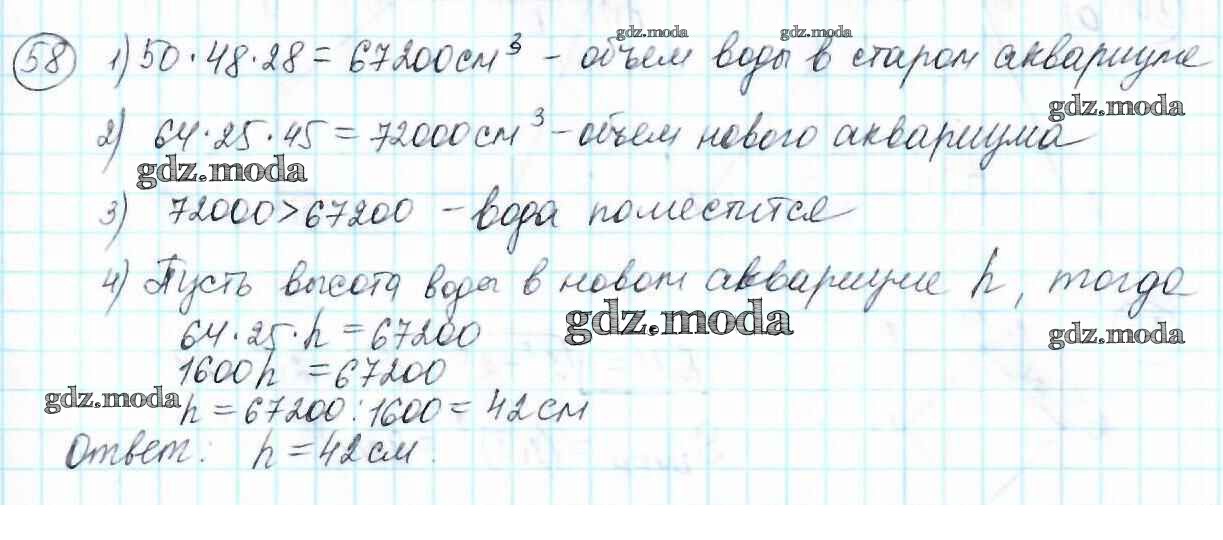 gdz.moda gdz.moda
58 1) 50·48·28 = 67200 см³ - объем воды в старом аквариуме
gdz.moda
2) 64·25·45 = 72000 см³ - объем нового аквариума
gdz.moda
3) 72000 > 67200 - вода поместится
4) Пусть высота воды в новом аквариуме h, тогда
64·25·h = 67200
gdz.moda gdz.moda
1600h = 67200
gdz.moda
h = 67200 : 1600 = 42 см
Ответ: h = 42 см.